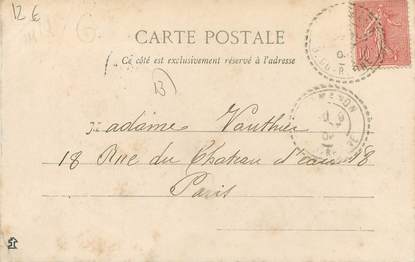 12 €
CARTE POSTALE
Ce côté est exclusivement réservé à l'adresse
13
Madame Vauthier
18 Rue du Chateau d'eau 18
Paris